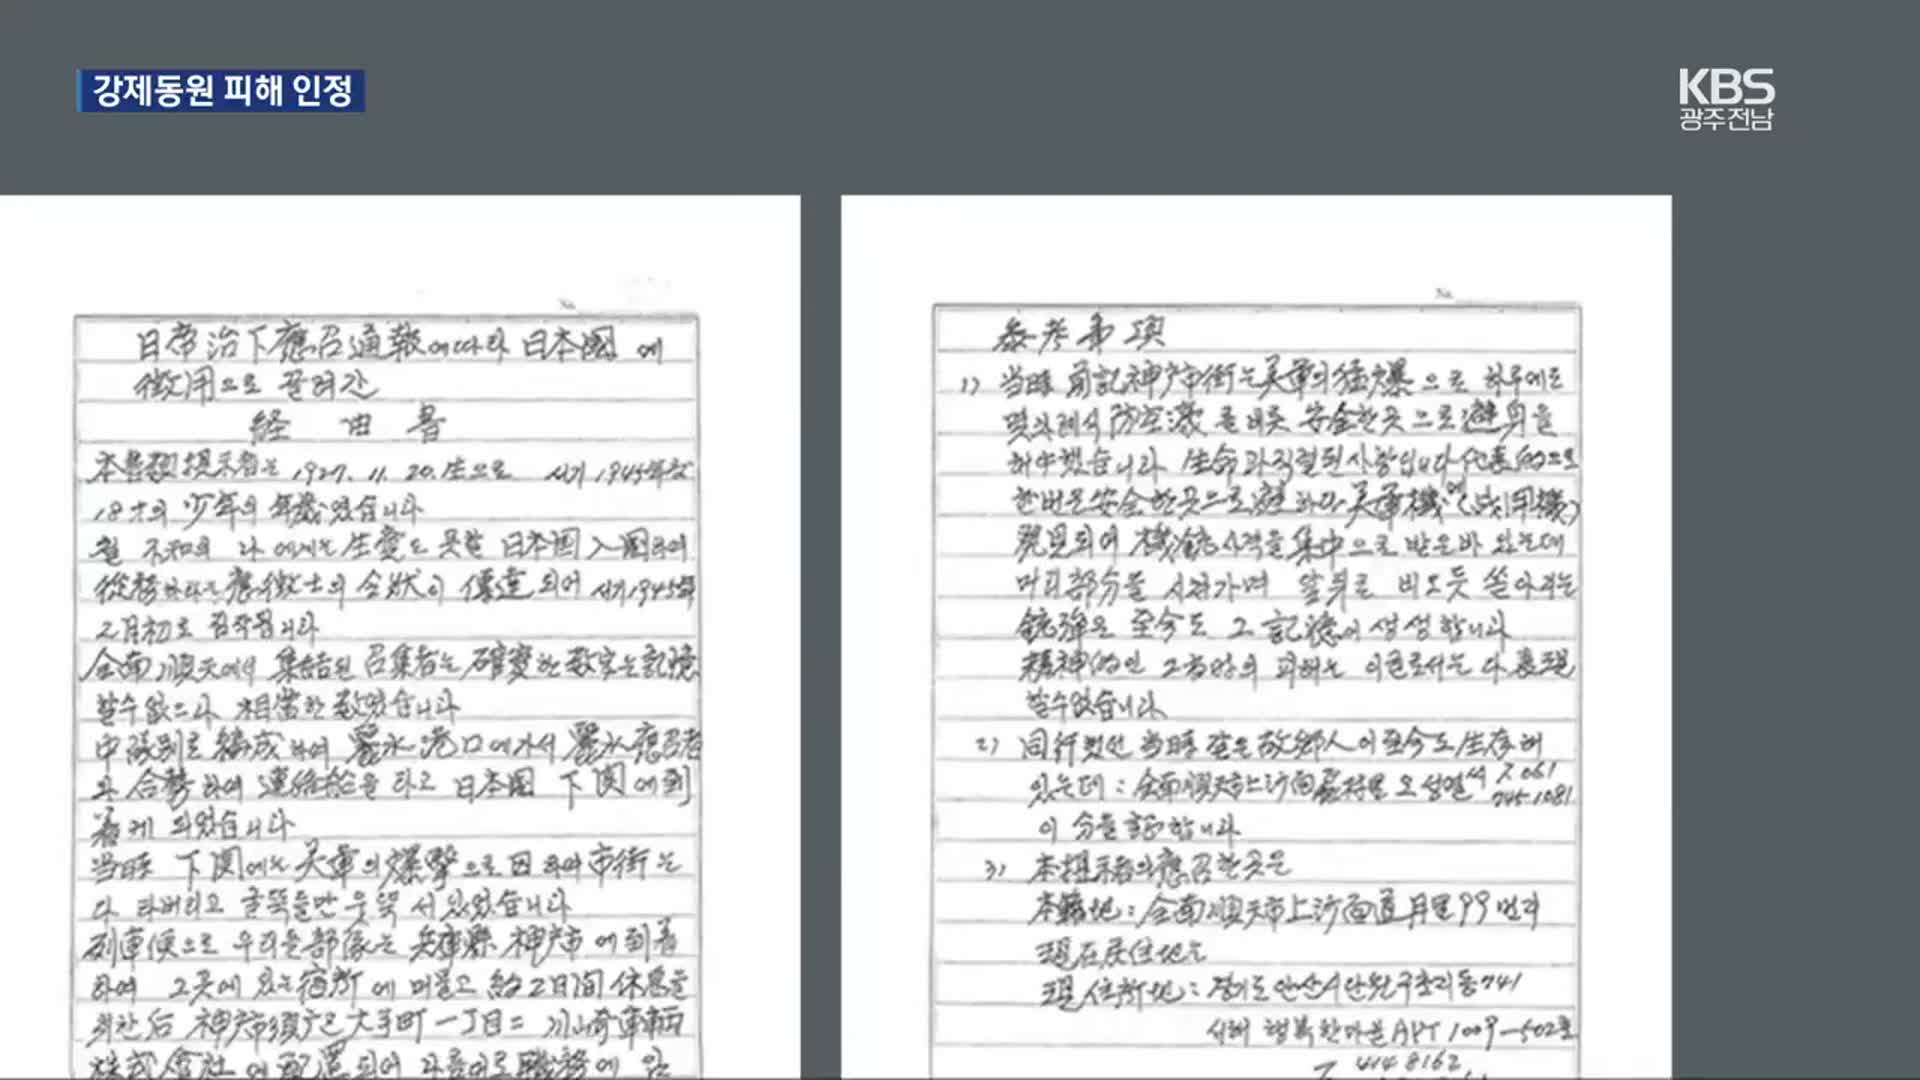 강제동원 피해 인정
KBS
광주전남
日帝治下應召通報에따라 日本國에
徵用으로 끌려간
経由書
本書類提示者는 1927. 11. 20.生으로 서기 1945年
18才의 少年의 年歲였습니다
나에게는 生覺도 못할 日本國 入國하여
應徵士의 令狀이 傳達되어 서기1945年
2月初로 짐작됩니다
全南順天에서 集結된 召集者는 確實한 数字는 記憶
할수없으나 相當한 数였습니다
中隊別로 編成하여 麗水港口에가서 麗水應召者
와 合勢하여 連絡船을 타고 日本國 下関에 到
着케 되었습니다
当時 下関에는 美軍의 爆擊으로 因하여 市街는
다 타버리고 굴뚝들만 우뚝 서있었습니다
列車便으로 우리들部隊는 兵庫縣 神戶市에 到着
하여 그곳에 있는 宿所에 머물고 約2日間 休息을
취한后 神戶市須戶區 大手町 一丁目二 川崎車輌
株式會社에 配置되어 다음어로 職務에 임
参考事項
1) 当時 前記神戶市街는 美軍의 猛爆으로 하루에도
몇차례식 防空濠를 비롯 安全한 곳으로 避身을
해야했습니다 生命과 직결된 사항입니다
한번은 安全한 곳으로 避하다 美軍機에
發見되어 機銃사격을 集中으로 받은바 있는데
머리部分을 시쳐가며 앞뒤로 비오듯 쏟아지는
銃彈은 至今도 그 記憶이 生生합니다
精神的인 그 当時의 피해는 이루로서는 다 表現
할수없습니다
2) 同行했던 当時 같은 故鄕人이 至今도 生存해
있는데 : 全南順天市上沙面 오성열씨 T 061
745 1081
이 分을 証합니다
3) 本提示者의 應召한곳은
本籍地 : 全南順天市上沙面 月里 99번지
現在居住地는
現住所地 : 경기도 안산시 단원구 초지동 741
행복한마을 APT 1009-502호
T 414 8162